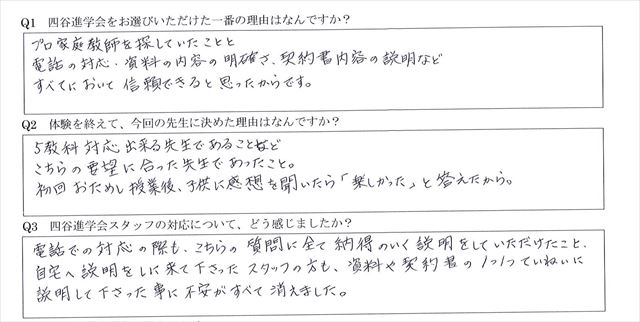 Q1 四谷進学会をお選びいただけた一番の理由はなんですか？
プロ家庭教師を探していたことと
電話の対応・資料の内容の明確さ、契約書内容の説明など
すべてにおいて信頼できると思ったからです。
Q2 体験を終えて、今回の先生に決めた理由はなんですか？
5教科対応出来る先生であることなど
こちらの要望に合った先生であったこと。
初回おためし授業後、子供に感想を聞いたら「楽しかった」と答えたから。
Q3 四谷進学会スタッフの対応について、どう感じましたか？
電話での対応の際も、こちらの質問に全て納得のいく説明をしていただけたこと、
自宅へ説明をしに来て下さったスタッフの方も、資料や契約書の1つ1つていねいに
説明して下さった事に不安がすべて消えました。